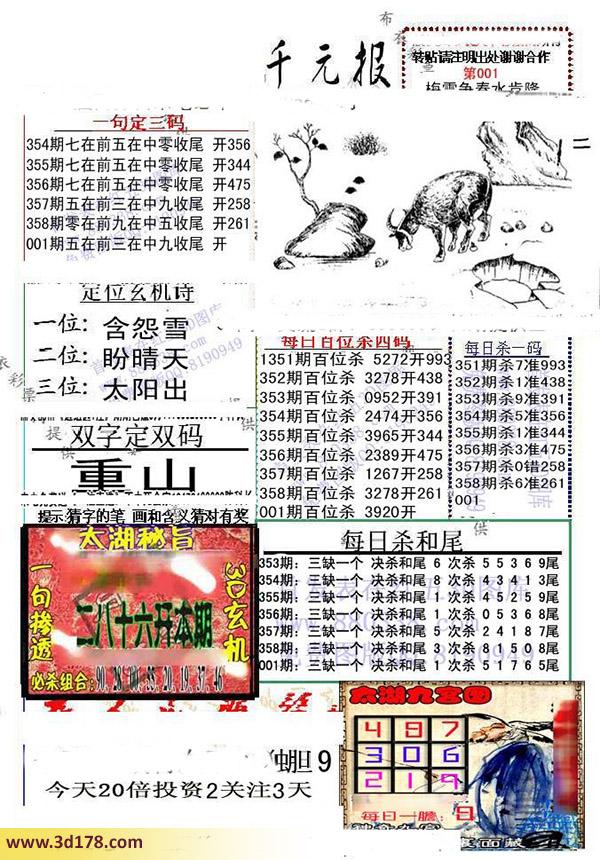 千元报
转贴请注明出处谢谢合作
第001
梅雪争春水肯降
一句定三码
354期七在前五在中零收尾 开356
355期七在前五在中零收尾 开344
356期七在前五在中零收尾 开475
357期五在前三在中九收尾 开258
358期零在前九在中五收尾 开261
001期五在前三在中九收尾 开
二
定位玄机诗
一位: 含怨雪
二位: 盼晴天
三位: 太阳出
每日百位杀四码
1351期百位杀 5272开993
352期百位杀 3278开438
353期百位杀 0952开391
354期百位杀 2474开356
355期百位杀 3965开344
356期百位杀 2389开475
357期百位杀 1267开258
358期百位杀 3278开261
001期百位杀 3920开
每日杀一码
351期杀7准993
352期杀1准438
353期杀9准391
354期杀5准356
355期杀1准344
356期杀3准475
357期杀0错258
358期杀6准261
001
双字定双码
重山
提示:猜字的笔 画和含义猜对有奖
太湖秘旨
一句掺透
3D玄机
二八十六开本期
必杀组合:90.28.00.33.20.19.37.46
每日杀和尾
353期: 三缺一个 决杀和尾 6 次杀 5 5 3 6 9尾
354期: 三缺一个 决杀和尾 8 次杀 4 3 4 1 3尾
355期: 三缺一个 决杀和尾 4 次杀 2 6 2 5 9尾
356期: 三缺一个 决杀和尾 1 次杀 0 5 3 6 8尾
357期: 三缺一个 决杀和尾 5 次杀 2 4 1 8 7尾
358期: 三缺一个 决杀和尾 3 次杀 8 1 5 0 8尾
001期: 三缺一个 决杀和尾 1 次杀 5 1 7 6 5尾
太湖九宫图
4 8 7
3 0 6
2 1 9
每日一胆: 9
胆 9
今天20倍投资2关注3天
www.3d178.com